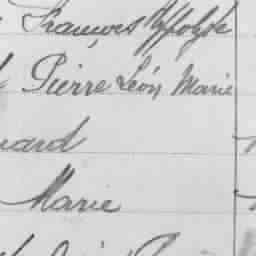 François Hypolyte
Pierre Léon Marie
uard
Marie